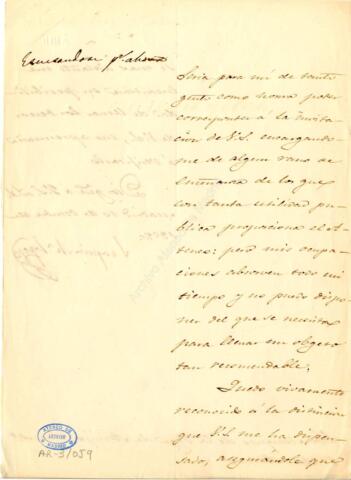 Escusandose pr. ahora
Seria para mi de tanto
gusto como honra poder
corresponder a la invita-
cion de S.S. encargando-
me de algun ramo de
enseñanza de los que
con tanta utilidad pu-
blica proporciona el At-
eneo: pero mis ocupa-
ciones absorven todo mi
tiempo y no puedo dispo-
ner del que se necesita
para llenar un obgeto
tan recomendable.
Quedo vivamente
reconocido á la distincion
que S.S. me ha dispen-
sado, asegurándole que
ATENEO DE
MADRID
AR-3/059